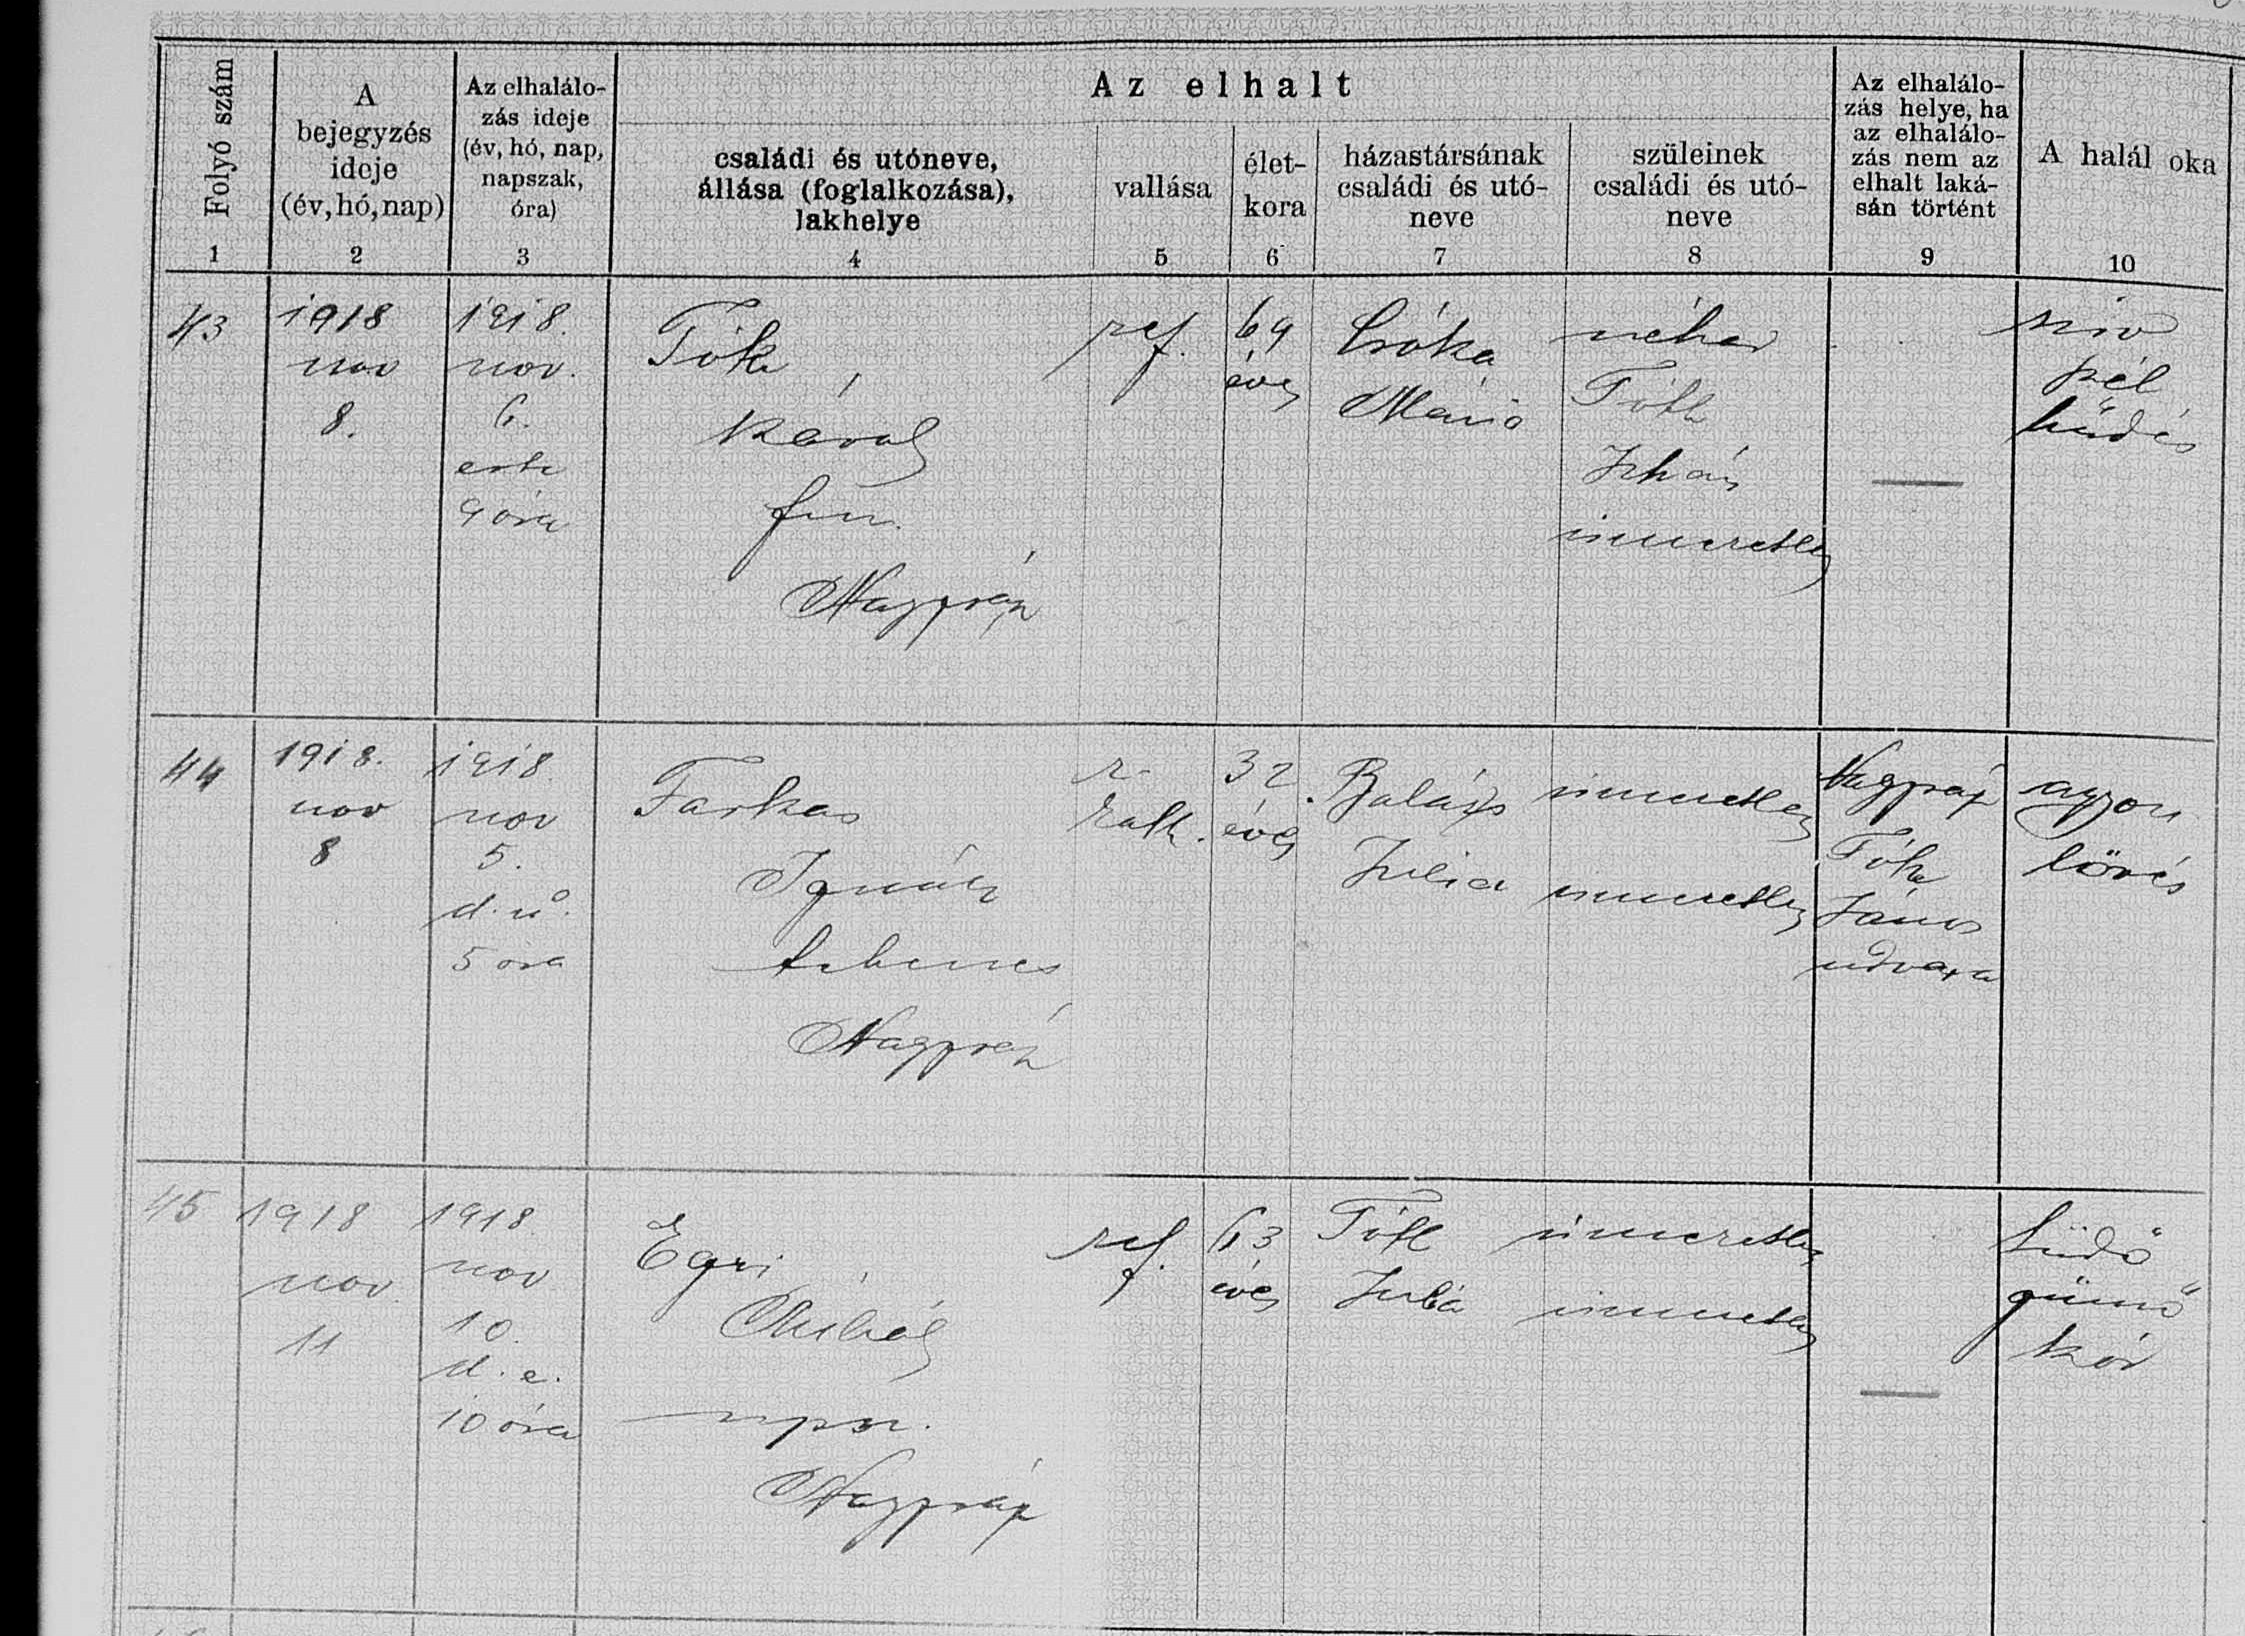 Folyó szám
1
A
bejegyzés
ideje
(év, hó, nap)
2
Az elhalálo-
zás ideje
(év, hó, nap,
napszak,
óra)
3
Az elhalt
családi és utóneve,
állása (foglalkozása),
lakhelye
4
vallása
5
élet-
kora
6
házastársának
családi és utó-
neve
7
szüleinek
családi és utó-
neve
8
Az elhalálo-
zás helye, ha
az elhalálo-
zás nem az
elhalt laká-
sán történt
9
A halál oka
10
43
1918
nov
8.
1918.
nov.
6.
este
9 óra
Tóth
Károly
ref.
69
éves
Csóka
Mária
néhai
Tóth
István
ismeretlen
szív
szél
hüdés
44
1918.
nov
8
1918.
nov
5.
d. u.
5 óra
Farkas
Ignácz
r.
kath.
32
éves
Balázs
Julia
ismeretlen
ismeretlen
Tóth
János
udvara
agyon
lövés
45
1918
nov
11
1918.
nov
10.
d. e.
10 óra
Egri
Mihály
npsz.
ref.
63
éves
Tóth
Julia
ismeretlen
ismeretlen
tüdő
gümő
kór